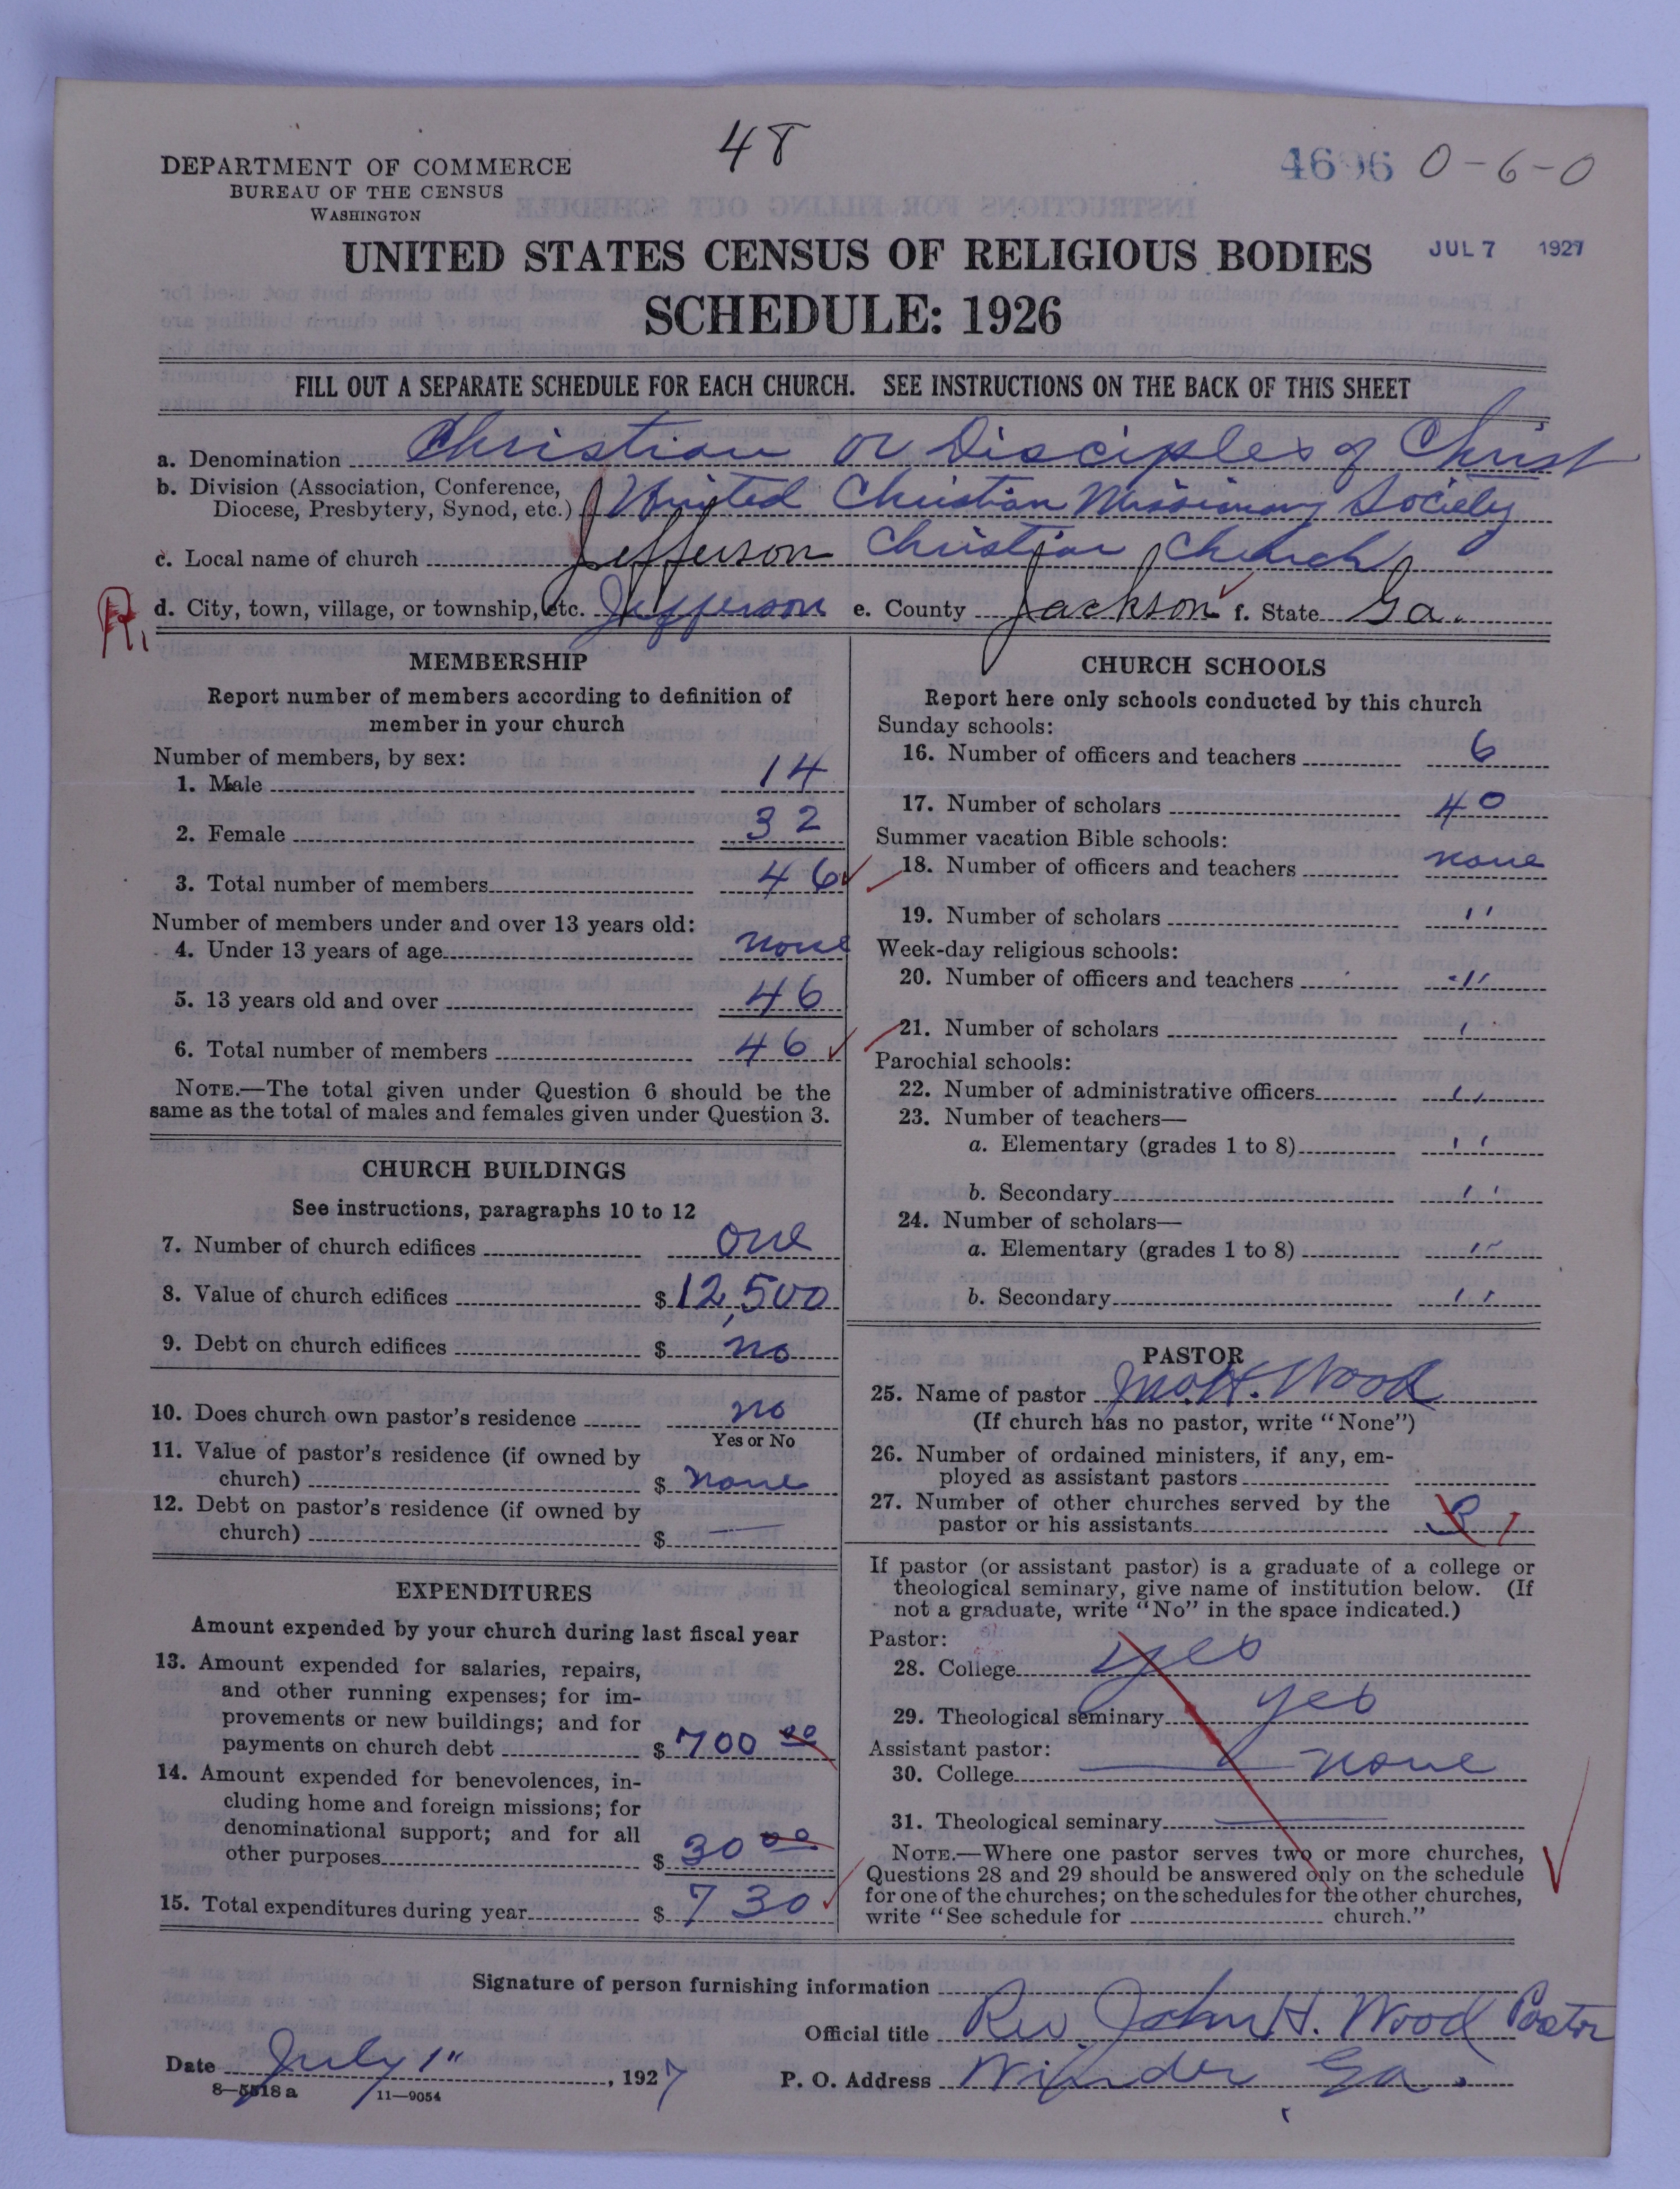 48
4696 0-6-0
DEPARTMENT OF COMMERCE
BUREAU OF THE CENSUS
WASHINGTON
UNITED STATES CENSUS OF RELIGIOUS BODIES
JUL 7 1927
SCHEDULE: 1926
FILL OUT A SEPARATE SCHEDULE FOR EACH CHURCH. SEE INSTRUCTIONS ON THE BACK OF THIS SHEET
a. Denomination Christian or Disciples of Christ
b. Division (Association, Conference, Diocese, Presbytery, Synod, etc.) United Christian Missionary Society
c. Local name of church Jefferson Christian Church
R. d. City, town, village, or township, etc. Jefferson e. County Jackson f. State Ga.
MEMBERSHIP
Report number of members according to definition of
member in your church
Number of members, by sex:
1. Male 14
2. Female 32
3. Total number of members 46
Number of members under and over 13 years old:
4. Under 13 years of age none
5. 13 years old and over 46
6. Total number of members 46
NOTE.—The total given under Question 6 should be the
same as the total of males and females given under Question 3.
CHURCH BUILDINGS
See instructions, paragraphs 10 to 12
7. Number of church edifices one
8. Value of church edifices $12,500
9. Debt on church edifices $ no
10. Does church own pastor's residence no
Yes or No
11. Value of pastor's residence (if owned by
church) $ none
12. Debt on pastor's residence (if owned by
church) $ —
EXPENDITURES
Amount expended by your church during last fiscal year
13. Amount expended for salaries, repairs,
and other running expenses; for im-
provements or new buildings; and for
payments on church debt $ 700 00
14. Amount expended for benevolences, in-
cluding home and foreign missions; for
denominational support; and for all
other purposes $ 30 00
15. Total expenditures during year $ 730
CHURCH SCHOOLS
Report here only schools conducted by this church
Sunday schools:
16. Number of officers and teachers 6
17. Number of scholars 40
Summer vacation Bible schools:
18. Number of officers and teachers none
19. Number of scholars "
Week-day religious schools:
20. Number of officers and teachers "
21. Number of scholars '
Parochial schools:
22. Number of administrative officers "
23. Number of teachers—
a. Elementary (grades 1 to 8) "
b. Secondary "
24. Number of scholars—
a. Elementary (grades 1 to 8) "
b. Secondary "
PASTOR
25. Name of pastor Jno. H. Wood
(If church has no pastor, write "None")
26. Number of ordained ministers, if any, em-
ployed as assistant pastors
27. Number of other churches served by the
pastor or his assistants
If pastor (or assistant pastor) is a graduate of a college or
theological seminary, give name of institution below. (If
not a graduate, write "No" in the space indicated.)
Pastor:
28. College yes
29. Theological seminary yes
Assistant pastor:
30. College — none
31. Theological seminary —
NOTE.—Where one pastor serves two or more churches,
Questions 28 and 29 should be answered only on the schedule
for one of the churches; on the schedules for the other churches,
write "See schedule for church."
Signature of person furnishing information
Official title Rev John H. Wood Pastor
Date July 1", 1927 P. O. Address Winder Ga.
8—5518 a 11—9054